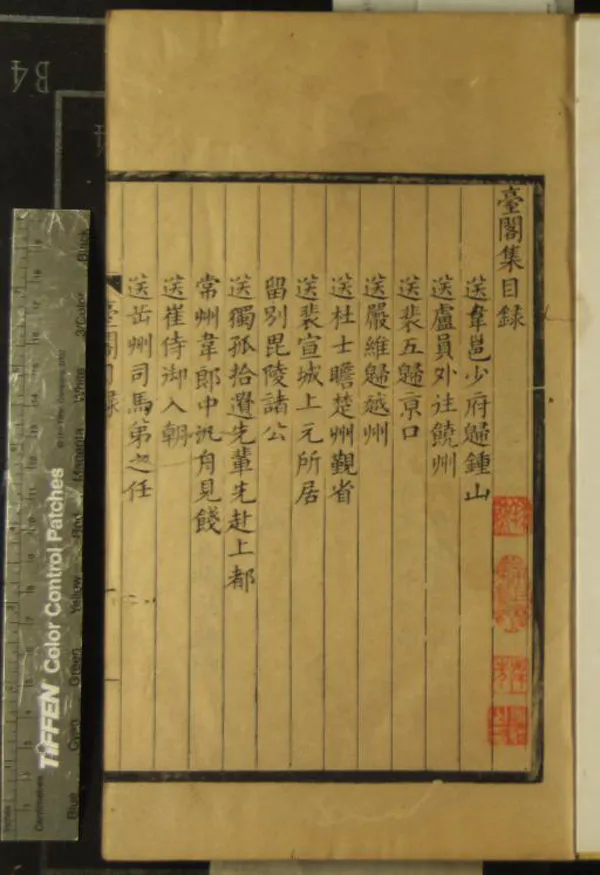 臺閣集目録
送韋邕少府歸鍾山
送盧員外往饒州
送裴五歸京口
送嚴維歸越州
送杜士瞻楚州覲省
送裴宣城上元所居
留別毘陵諸公
送獨孤拾遺先輩先赴上都
常州韋郎中汎舟見餞
送崔侍御入朝
送岳州司馬弟之任
臺閣目録
B4
TIFFEN Color Control Patches
Blue Cyan Green Yellow Red Magenta White 3/Color Black
Inches
Centimetres